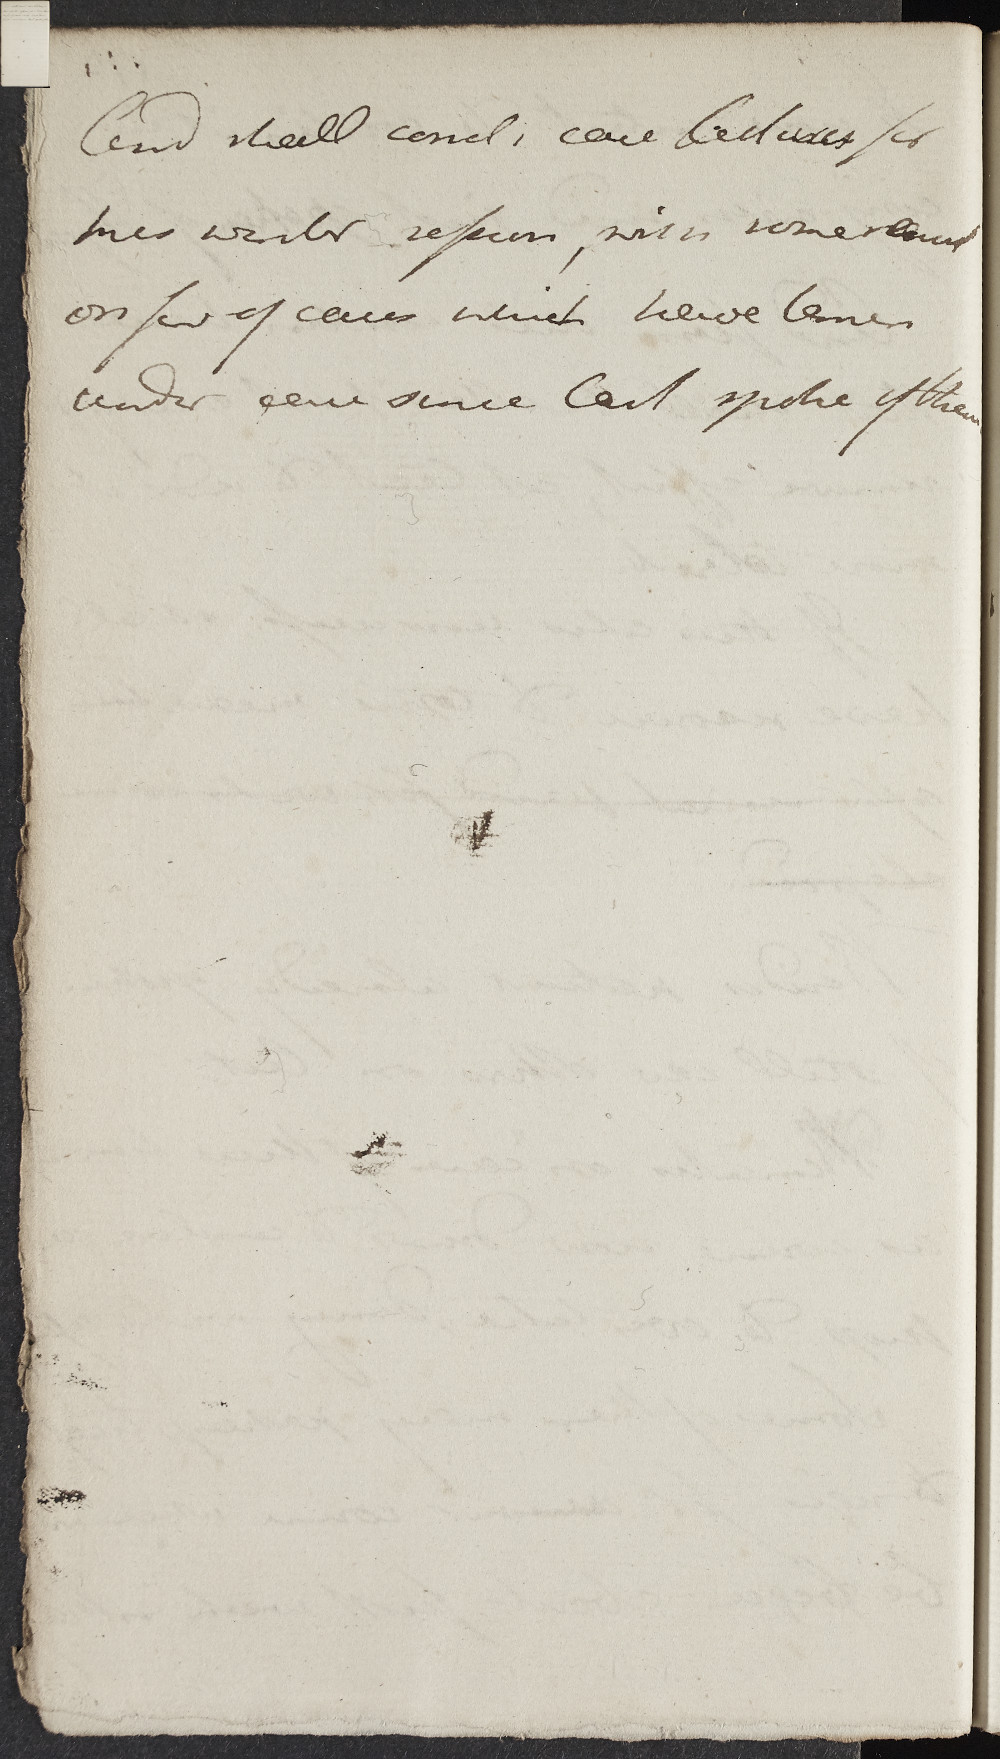 And shall concl: case Lectures for
this winter session, with some rem
on few of cases which have been
under care since last spoke of them